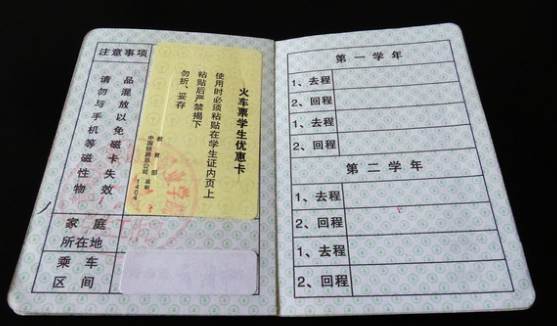 注意事项
请勿与手机等磁性物
品混放以免磁卡失效
火车票学生优惠卡
使用时必须粘贴在学生证内页上
粘贴后严禁揭下
勿折、妥存
教育部
中国铁路总公司 监制
家庭
所在地
乘车
区间
第一学年
1、去程
2、回程
1、去程
2、回程
第二学年
1、去程
2、回程
1、去程
2、回程